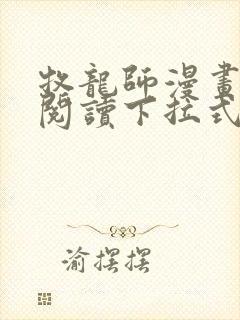 牧龍師漫畫
閱讀下拉式
渝摆摆